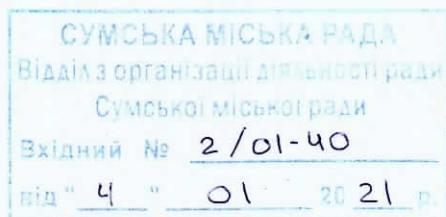 СУМСЬКА МІСЬКА РАДА
Відділ з організації діяльності ради
Сумської міської ради
Вхідний № 2/01-40
від " 4 " 01 20 21 р.